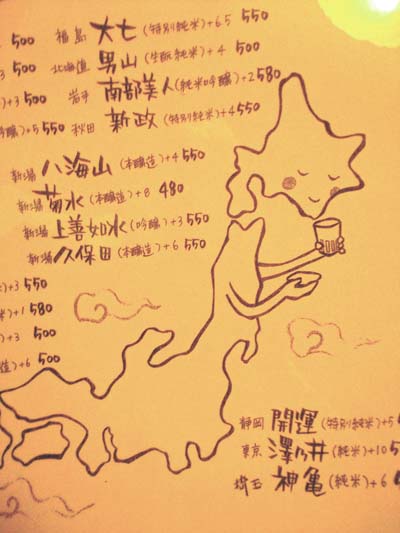 500 福島 大七 (特別純米)+6.5 550
3 500 北海道 男山 (生酛純米)+4 500
)+3 500 岩手 南部美人 (純米吟醸)+2 580
吟醸)+5 550 秋田 新政 (特別純米)+4 550
新潟 八海山 (本醸造)+4 550
新潟 菊水 (本醸造)+8 480
新潟 上善如水 (吟醸)+3 550
新潟 久保田 (本醸造)+6 550
米)+3 550
米)+1 580
)+3 500
造)+6 500
静岡 開運 (特別純米)+5
東京 澤乃井 (純米)+10 5
埼玉 神亀 (純米)+6